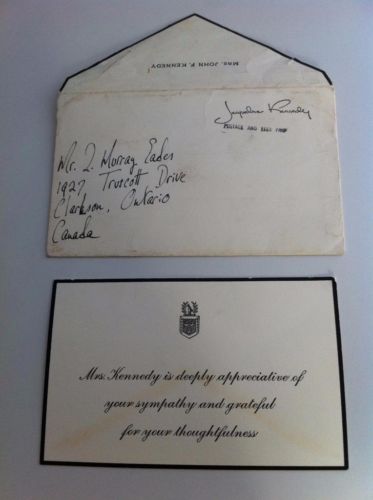 MRS. JOHN F. KENNEDY
Jacqueline Kennedy
POSTAGE AND FEES PAID
Mr. J. Murray Eades
1927 Truscott Drive
Clarkson, Ontario
Canada
Mrs. Kennedy is deeply appreciative of
your sympathy and grateful
for your thoughtfulness